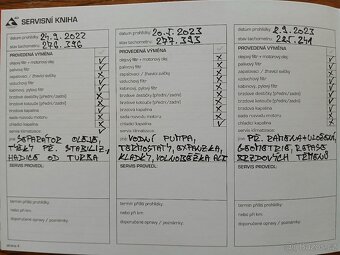 SERVISNÍ KNIHA
datum prohlídky 24.9.2022
stav tachometru 270.396
PROVEDENÁ VÝMĚNA
olejový filtr + motorový olej
palivový filtr
zapalovací / žhavicí svíčky
vzduchový filtr
kabinový, pylový filtr
brzdové destičky (přední/zadní)
brzdové kotouče (přední/zadní)
brzdová kapalina
sada rozvodu motoru
chladicí kapalina
servis klimatizace
SEPARÁTOR OLEJE,
TYČKY PŘ. STABILIZ,
HADICE OD TURBA
SERVIS PROVEDL:
termín příští prohlídky:
nebo při km:
doporučené opravy / poznámky:
strana 4
datum prohlídky 20.5.2023
stav tachometru 277.393
PROVEDENÁ VÝMĚNA
olejový filtr + motorový olej
palivový filtr
zapalovací / žhavicí svíčky
vzduchový filtr
kabinový, pylový filtr
brzdové destičky (přední/zadní)
brzdové kotouče (přední/zadní)
brzdová kapalina
sada rozvodu motoru
chladicí kapalina
servis klimatizace
VODNÍ PUMPA,
TERMOSTATY,
KLADKY, VOLNOBĚŽKA ALT
SERVIS PROVEDL:
termín příští prohlídky:
nebo při km:
doporučené opravy / poznámky:
datum prohlídky 2.9.2023
stav tachometru 285.241
PROVEDENÁ VÝMĚNA
olejový filtr + motorový olej
palivový filtr
zapalovací / žhavicí svíčky
vzduchový filtr
kabinový, pylový filtr
brzdové destičky (přední/zadní)
brzdové kotouče (přední/zadní)
brzdová kapalina
sada rozvodu motoru
chladicí kapalina
servis klimatizace
PŘ. RAMENA+ULOŽENÍ
GEOMETRIE, REPASE
BRZDOVÝCH TŘMENŮ
SERVIS PROVEDL:
termín příští prohlídky:
nebo při km:
doporučené opravy / poznámky: